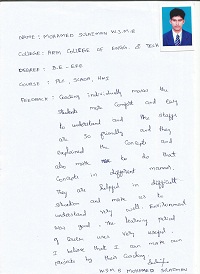 NAME : MOHAMED SULAIMAN W.S.M.B
COLLEGE : COLLEGE OF ENGG. & TECH
DEGREE : B.E - EEE
COURSE : PLC, SCADA, HMI
FEEDBACK : Coaching individually makes the
students more comfort and easy
to understand and the staffs
are so friendly and they
explained the concepts and
also make to do that
concepts in different manner.
They are helpful in difficult
situation and make us to
understand very well. Environment
was good. The learning period
of was very useful.
I believe that I can make own
by their coaching
W.S.M.B MOHAMED SULAIMAN